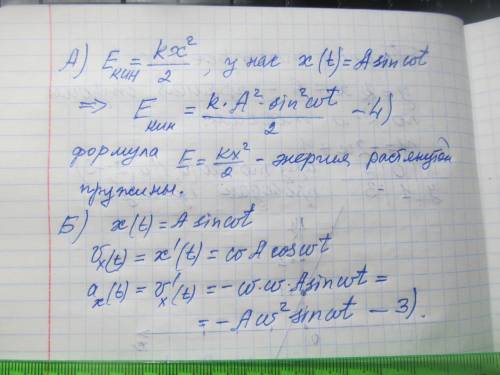 А) Eкин = kx²/2, у нас x(t) = A sin ωt
⇒ Eкин = k·A²·sin²ωt/2 – 4)
формула E = kx²/2 – энергия растянутой
пружины.
Б) x(t) = A sin ωt
υx(t) = x'(t) = ωA cos ωt
ax(t) = υx'(t) = –ω·ω·A sin ωt =
= –Aω² sin ωt – 3).